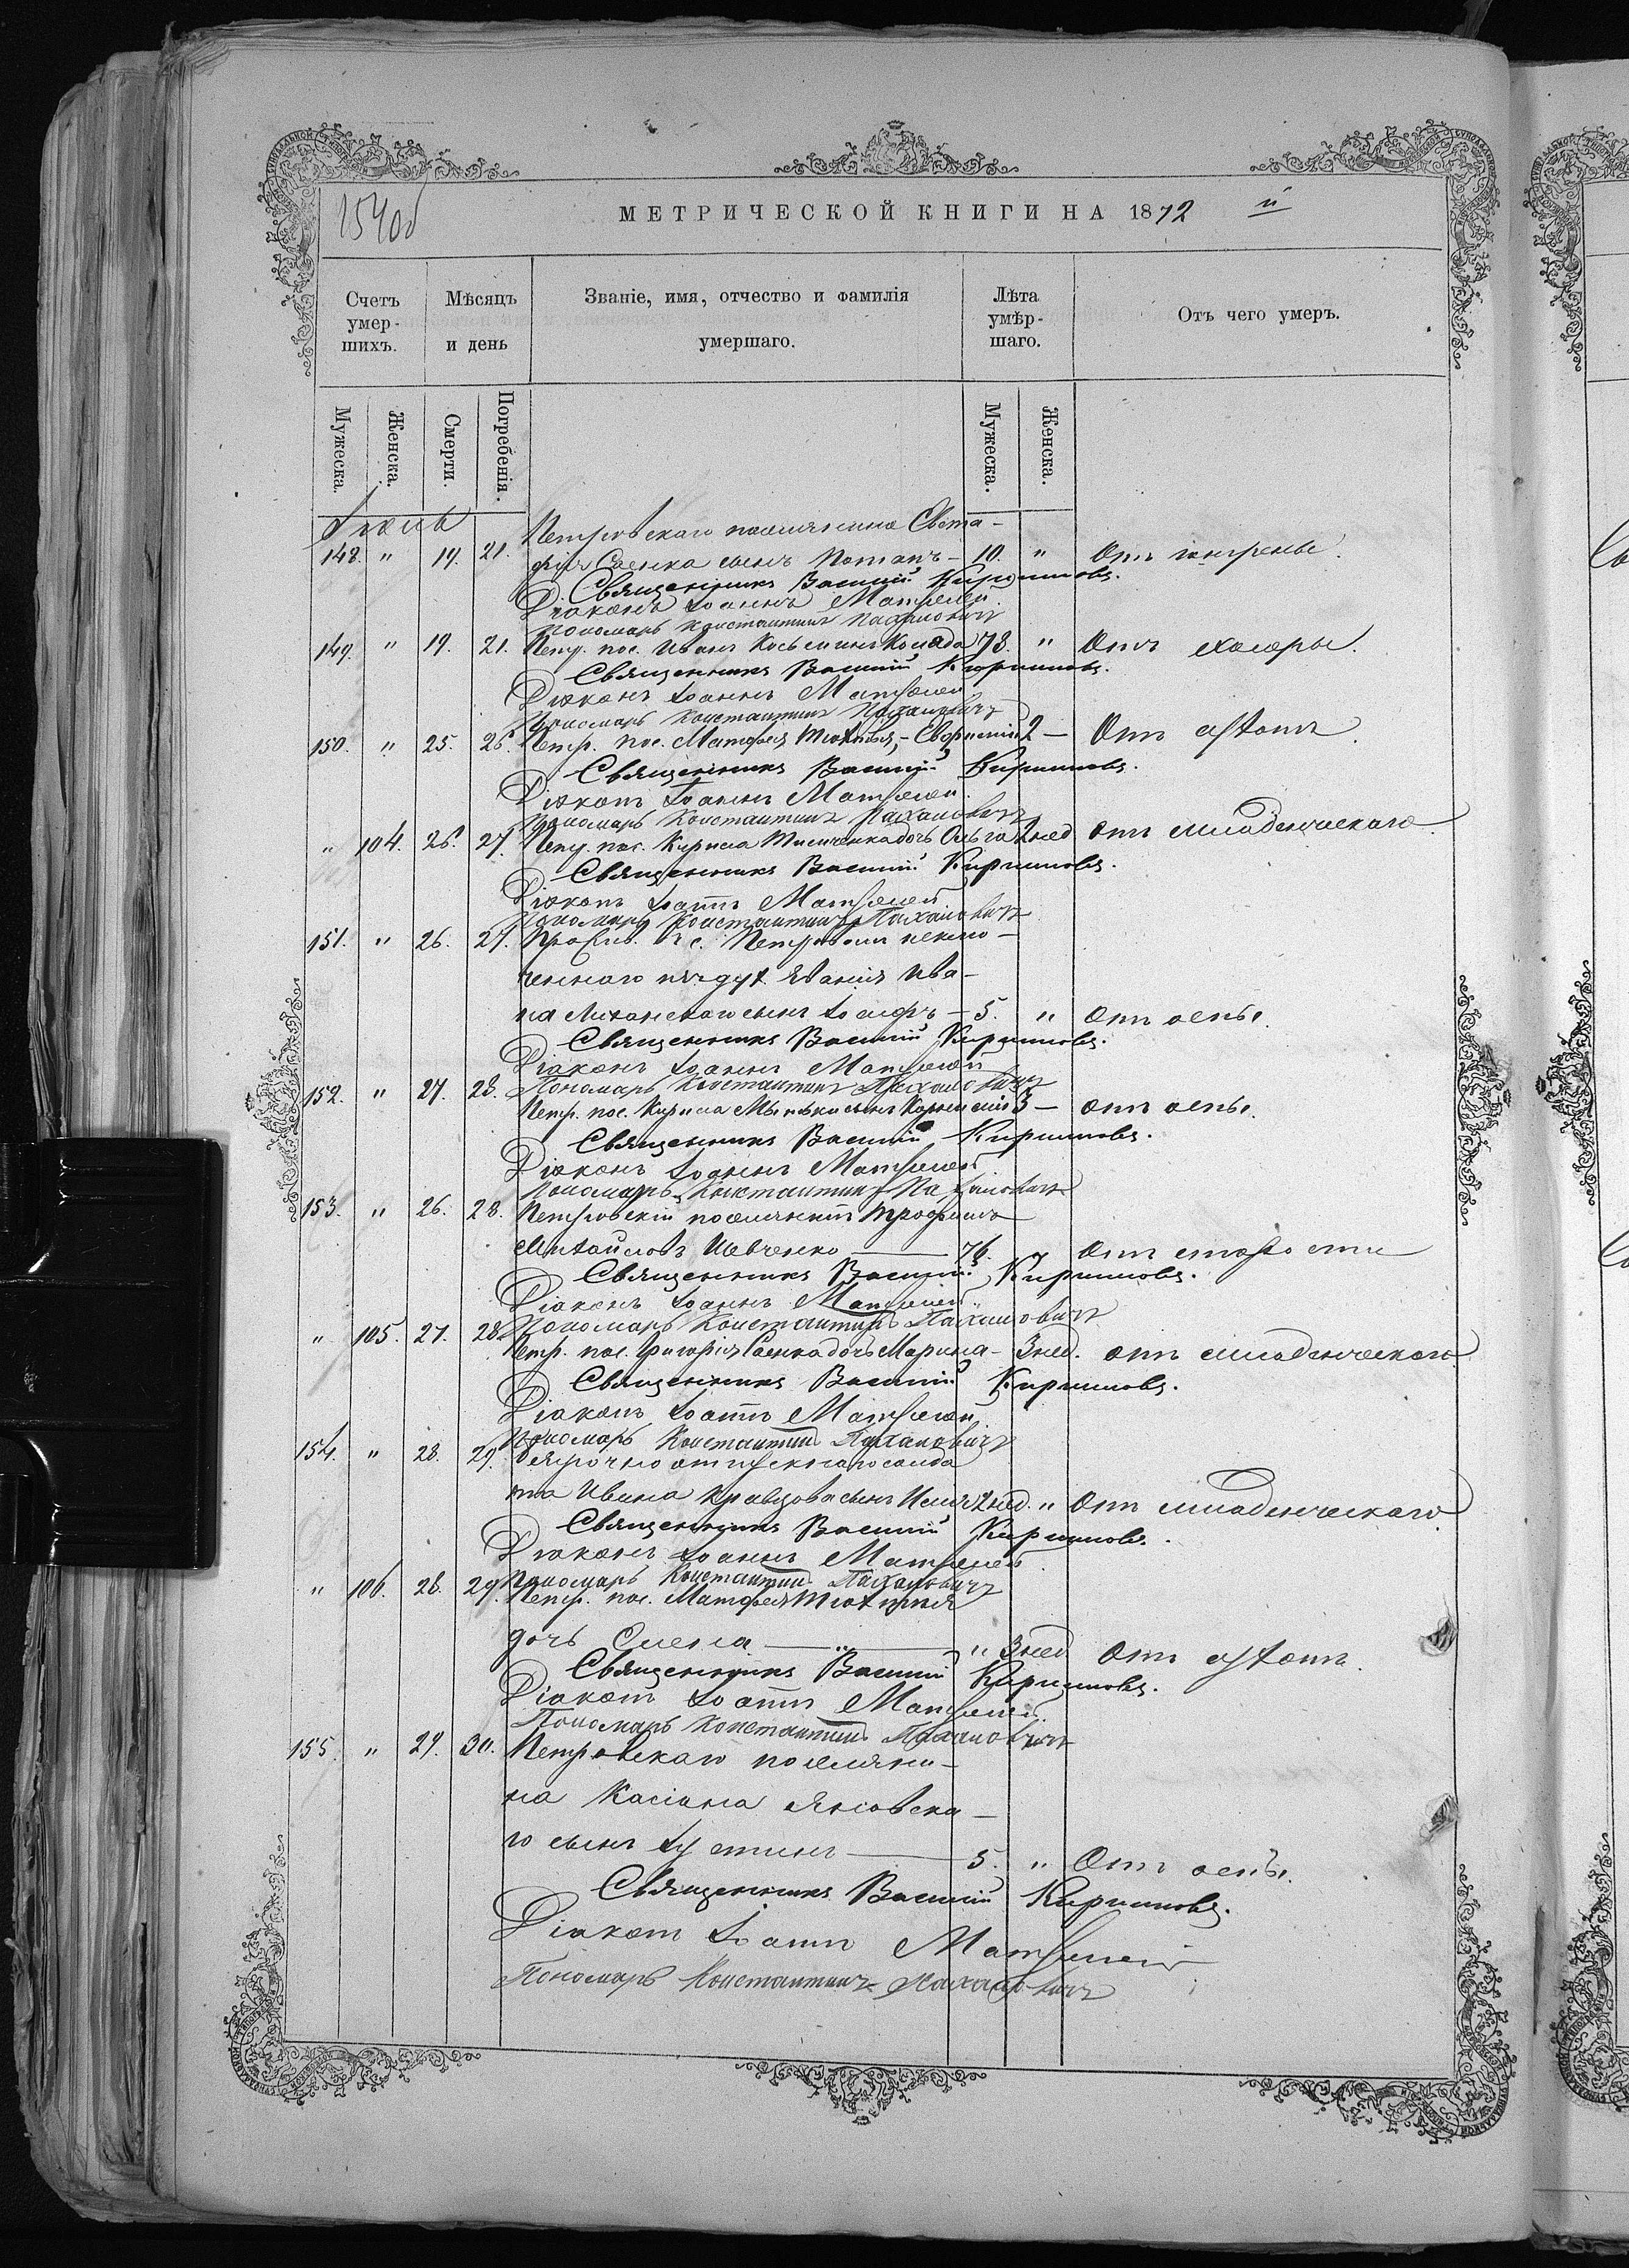 154об
МЕТРИЧЕСКОЙ КНИГИ НА 1872 й
Счетъ умер-шихъ.
Мѣсяцъ и день
Званіе, имя, отчество и фамилія умершаго.
Лѣта умѣр-шаго.
Отъ чего умеръ.
Мужеска. Женска. Смерти. Погребенія. Мужеска. Женска.
Петровскаго поселянина Евста-
148. " 19. 21. фія Саенка сынъ Потапъ — 10. " Отъ
Священникъ Василій Кирилловъ.
Діаконъ Іоаннъ
Пономарь Константинъ Пахаловичъ
149. " 19. 21. Петр. пос. Иванъ Косьминъ 78. " Отъ холеры.
Священникъ Василій Кирилловъ.
Діаконъ Іоаннъ
Пономарь Константинъ Пахаловичъ
150. " 25. 26. Петр. пос. Матфея 2 — Отъ
Священникъ Василій Кирилловъ.
Діаконъ Іоаннъ
Пономарь Константинъ Пахаловичъ
" 104. 26. 27. Петр. пос. Кирила дочь Ольга 2 нед Отъ младенческаго.
Священникъ Василій Кирилловъ.
Діаконъ Іоаннъ
Пономарь Константинъ Пахаловичъ
151. " 26. 27. въ с. Петровкѣ исклю-
ченнаго изъ дух. званія Ива-
на сынъ Іосифъ — 5. " Отъ оспы.
Священникъ Василій Кирилловъ.
Діаконъ Іоаннъ
152. " 27. 28. Пономарь Константинъ Пахаловичъ
Петр. пос. Кирила сынъ Корнилій 3 — отъ оспы.
Священникъ Василій Кирилловъ.
Діаконъ Іоаннъ
Пономарь Константинъ Пахаловичъ
153. " 26. 28. Петровскій поселянинъ Трофимъ
Михайловъ Шевченко — 76. " Отъ старости
Священникъ Василій Кирилловъ.
Діаконъ Іоаннъ
Пономарь Константинъ Пахаловичъ
" 105. 27. 28. Петр. пос. Григорія Саенка дочь Марина — 3 нед. отъ младенческаго
Священникъ Василій Кирилловъ.
Діаконъ Іоаннъ
Пономарь Константинъ Пахаловичъ
154. " 28. 29. отпускнаго солда
та Ивана Кравцова сынъ Илія 2 нед. " Отъ младенческаго
Священникъ Василій Кирилловъ.
Діаконъ Іоаннъ
Пономарь Константинъ Пахаловичъ
" 106. 28. 29. Петр. пос. Матфея
дочь Елена — " — " 3 нед Отъ
Священникъ Василій Кирилловъ.
Діаконъ Іоаннъ
Пономарь Константинъ Пахаловичъ
155. " 29. 30. Петровскаго поселяни-
на Касіана Яновска-
го сынъ Іустинъ — 5. " Отъ оспы.
Священникъ Василій Кирилловъ.
Діаконъ Іоаннъ
Пономарь Константинъ Пахаловичъ